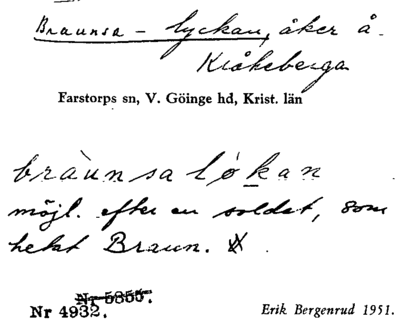 Braunsa - lyckan, åker å
Kråkeberga
Farstorps sn, V. Göinge hd, Krist. län
bràunsalókan
möjl. efter en soldat, som
hetat Braun.
Nr 5355.
Nr 4932.
Erik Bergenrud 1951.